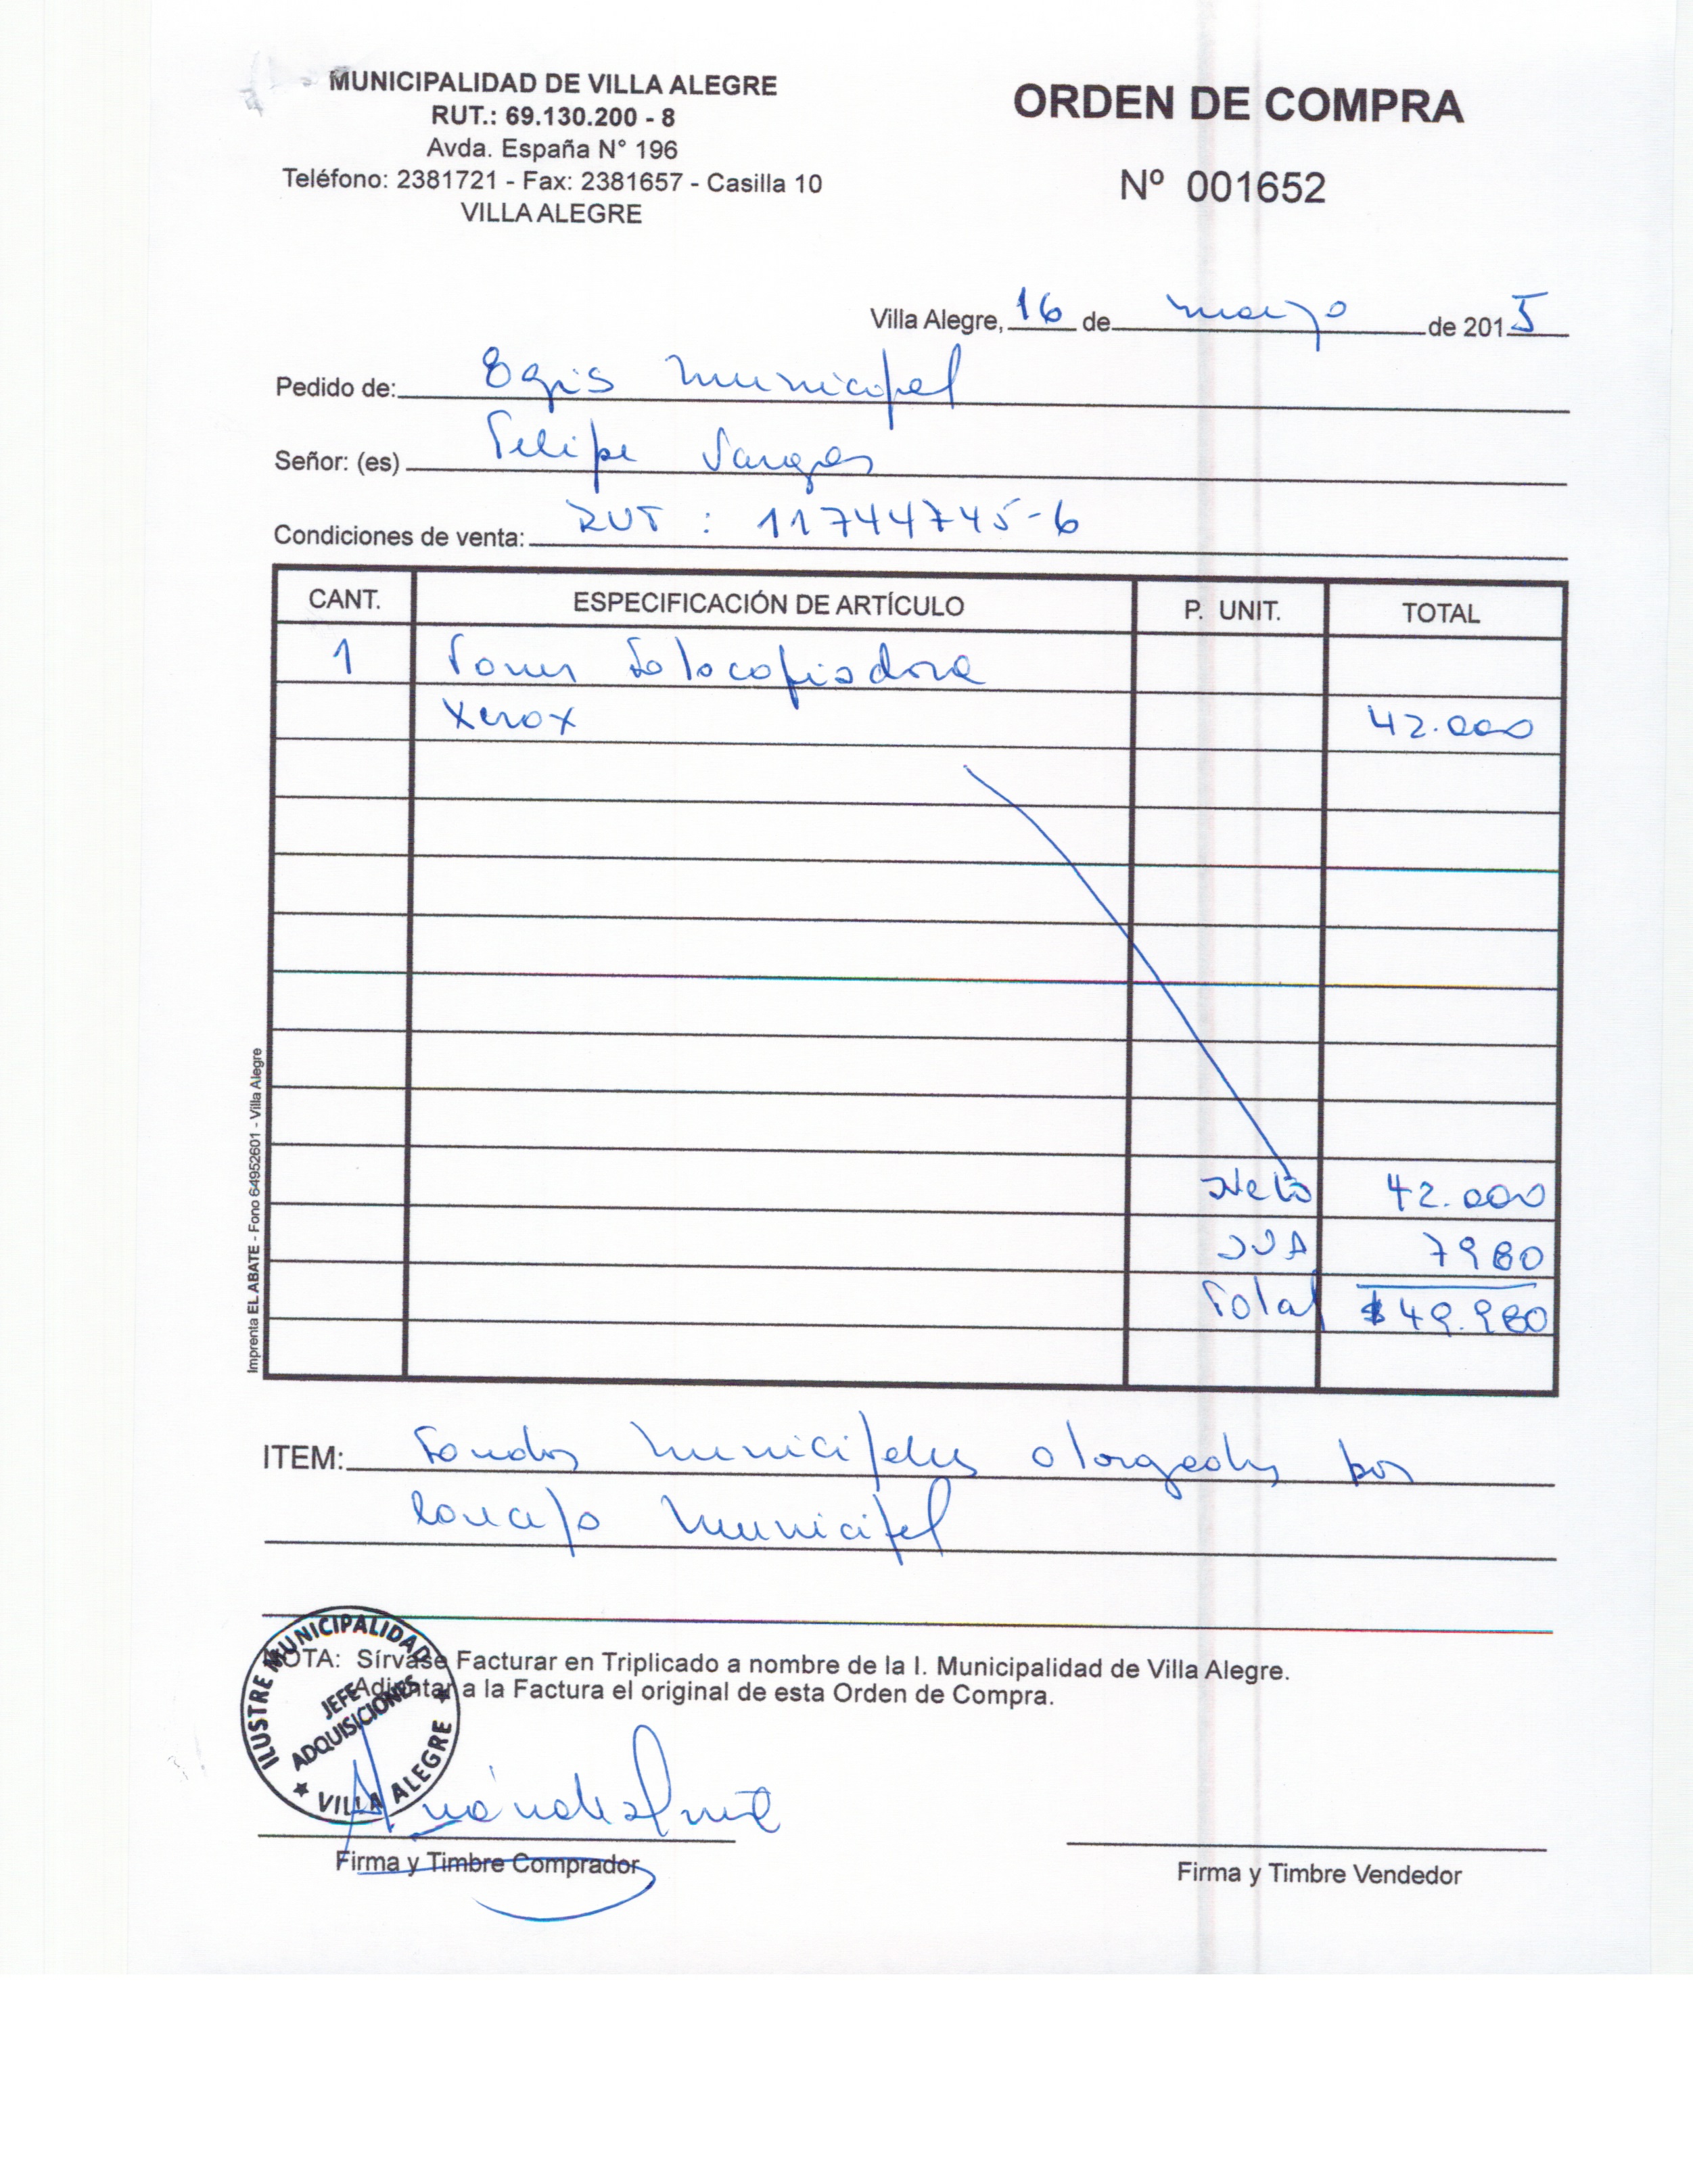 MUNICIPALIDAD DE VILLA ALEGRE
RUT.: 69.130.200 - 8
Avda. España N° 196
Teléfono: 2381721 - Fax: 2381657 - Casilla 10
VILLA ALEGRE
ORDEN DE COMPRA
Nº 001652
Villa Alegre, 16 de marzo de 2015
Pedido de: Egis Municipal
Señor: (es) Felipe Vargas
Condiciones de venta: RUT : 11744745-6
CANT. ESPECIFICACIÓN DE ARTÍCULO P. UNIT. TOTAL
1 Toner Fotocopiadora
Xerox 42.000
Neto 42.000
IVA 7980
Total $49.980
Imprenta EL ABATE - Fono 64952601 - Villa Alegre
ITEM: Fondos Municipales otorgados por
Concejo Municipal
NOTA: Sírvase Facturar en Triplicado a nombre de la I. Municipalidad de Villa Alegre.
Adjuntar a la Factura el original de esta Orden de Compra.
ILUSTRE MUNICIPALIDAD
JEFE
ADQUISICIONES
VILLA ALEGRE
Firma y Timbre Comprador
Firma y Timbre Vendedor